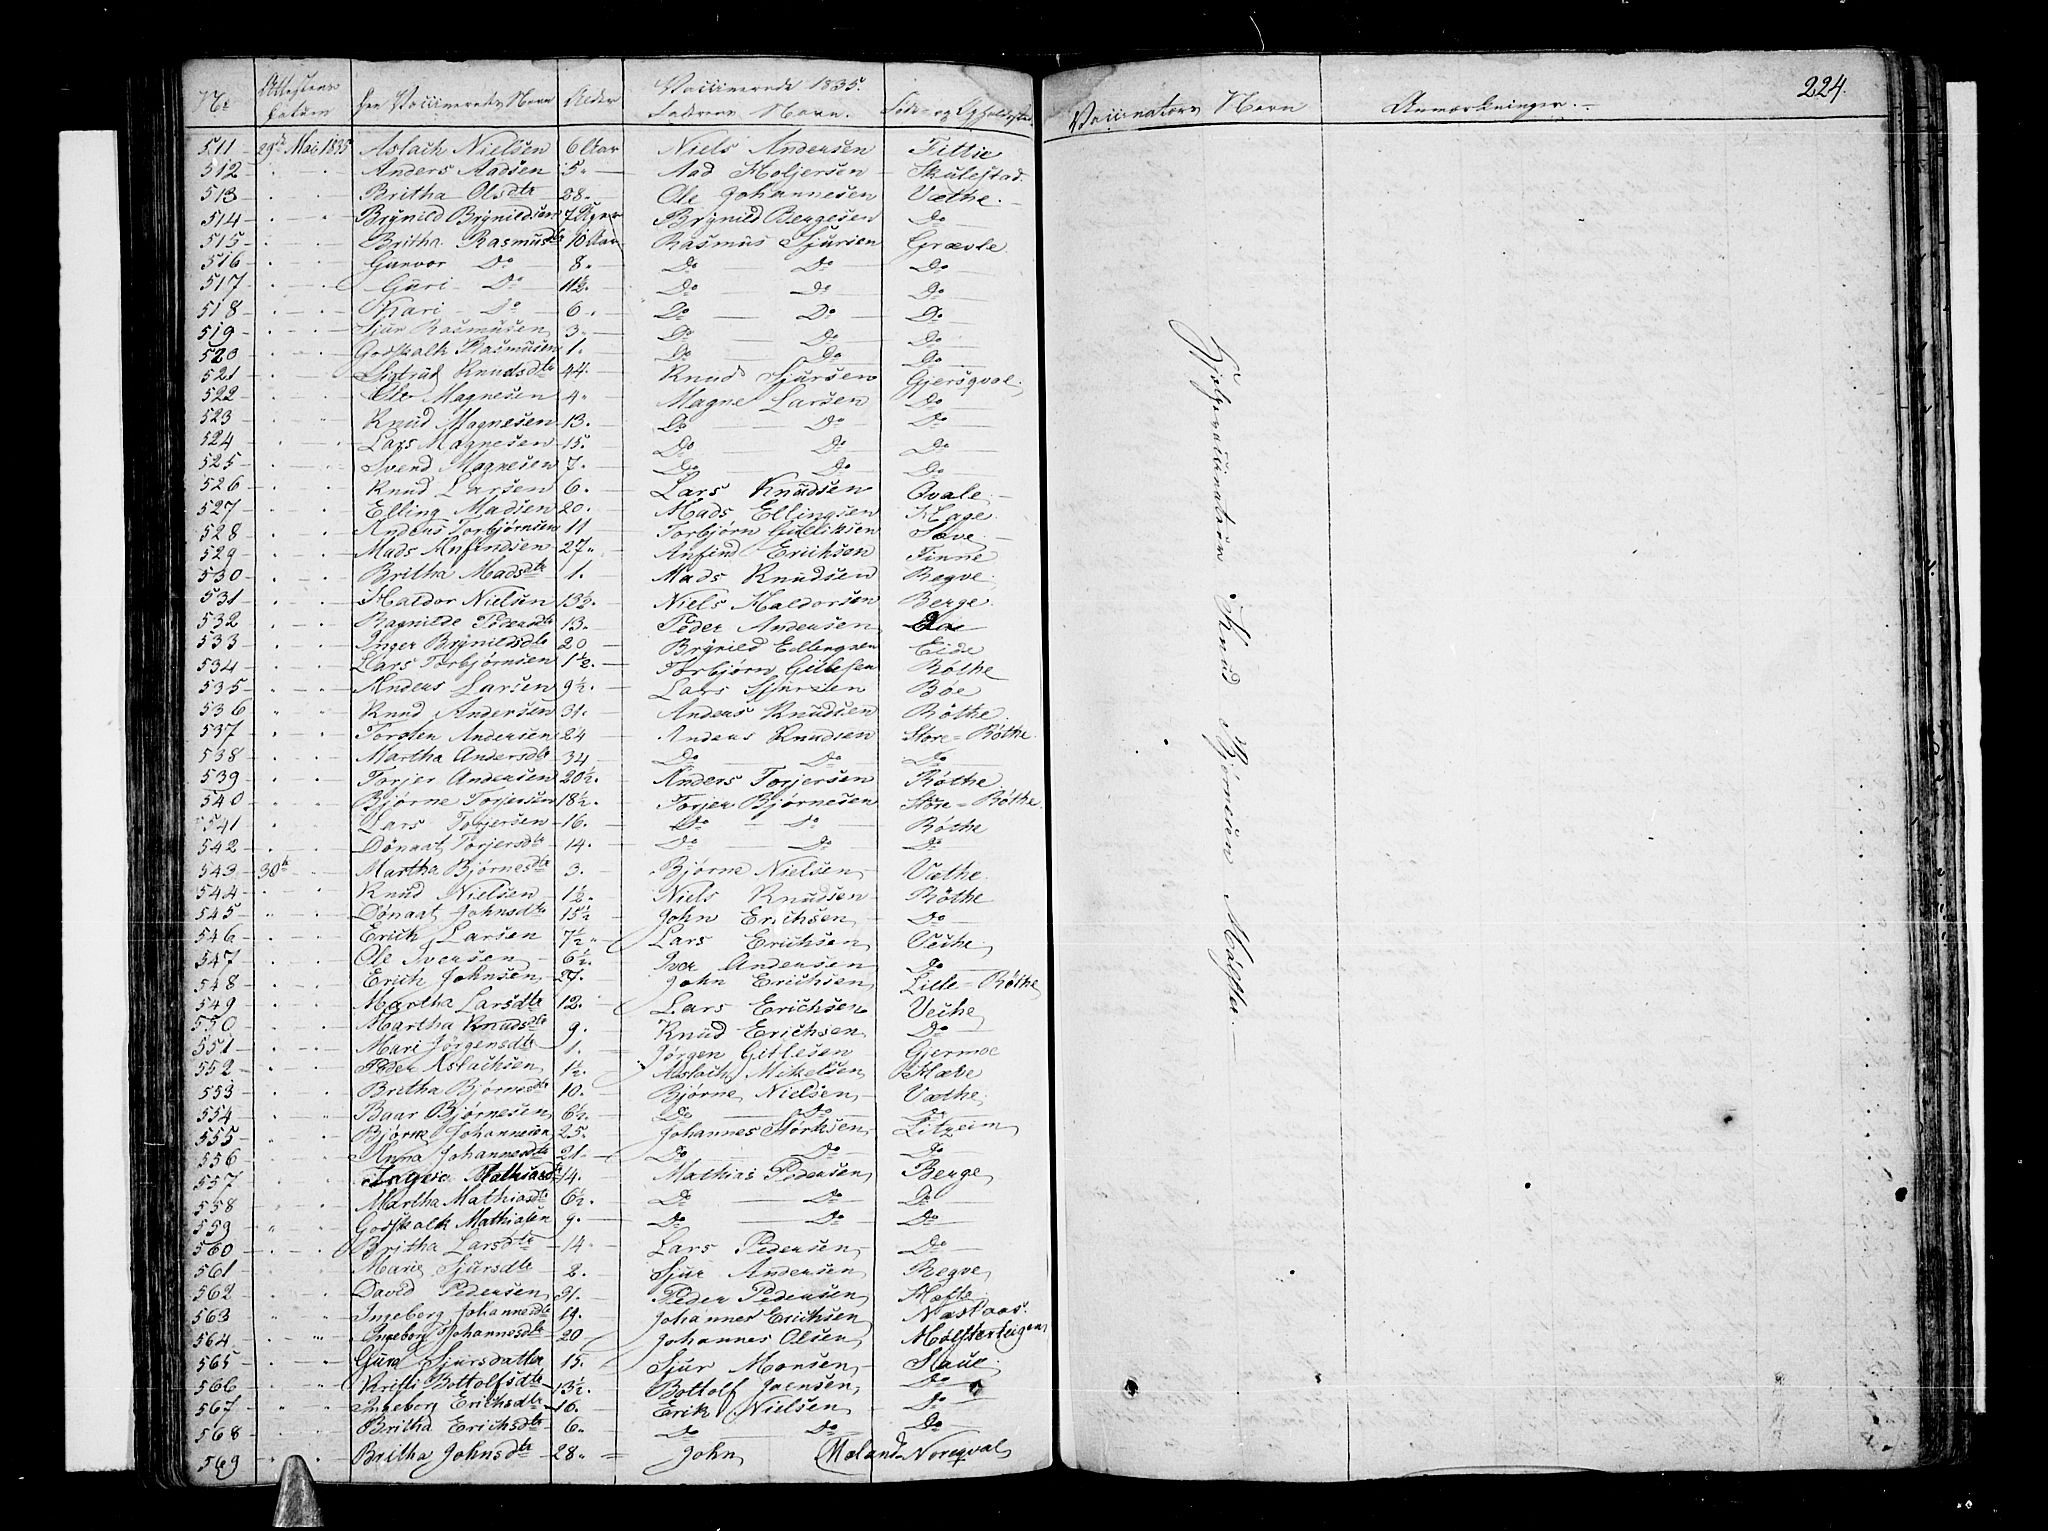 Vaccinerede 1835.
No Attestens Datum Den Vaccineredes Navn Alder Faderens Navn. Føde- og Opholdssted
511 29de Mai 1835 Aslach Nielsen 6 Aar Niels Andersen
512 Anders Aadsen 5 Aad Holjersen Skulestad
513 Britha Olsdtr 28. Ole Johannesen Væthe
514 Brÿnild Brÿnildsen 7 Uger Brÿnild Bergesen Do
515 Britha Rasmusdtr 10 Aar Rasmus Sjursen Grævle
516 Gunvor Do 8 Do Do Do
517 Guri Do 11½. Do Do Do
518 Kari Do 6. Do Do Do
519 Sjur Rasmusen 3. Do Do Do
520 Godskalk Rasmusen 1. Do Do Do
521 Sigtrud Knudsdtr 44. Knud Sjursen Gjersqval
522 Ole Magnesen 4 Magne Larsen Do
523 Knud Magnesen 13. Do Do Do
524 Lars Magnesen 15. Do Do Do
525 Svend Magnesen 7. Do Do Do
526 Knud Larsen 6. Lars Knudsen Qvale
527 Elling Madsen 20. Mads Ellingsen Hage
528 Anders Torbjørnsen 11 Torbjørn Gulliksen
529 Mads Anfindsen 27. Anfind Erichsen Finne
530 Britha Madsdtr 1. Mads Knudsen Rogve
531 Haldor Nielsen 13½. Niels Haldorsen Berge
532 Ragnilde Pedersdtr 13. Peder Andersen
533 Inger Brynildsdtr 20 Brÿnild Ellingsen Eide
534 Lars Torbjørnsen 1½. Torbjørn Gitlesen Røthe
535 Anders Larsen 9½. Lars Sjursen Bøe
536 Knud Andersen 31. Anders Knudsen Røthe
537 Torsten Andersen 24 Anders Knudsen Store=Røthe
538 Martha Andersdtr 34 Do Do Do
539 Torjer Andersen 20½. Anders Torjersen Røthe
540 Bjørne Torjersen 18½. Torjer Bjørnesen Store=Røthe
541 Lars Torjersen 16. Do Do Røthe
542 Dønaat Torjersdtr 14. Do Do Do
543 30te Martha Bjørnesdtr 3. Bjørne Nielsen Væthe
544 Knud Nielsen 1½. Niels Knudsen Røthe
545 Dønaat Johnsdtr 15½ John Erichsen Do
546 Erich Larsen 7½. Lars Erichsen Vethe
547 Ole Iversen 6½. Iver Andersen Do
548 Erich Johnsen 27. John Erichsen Lille=Røthe
549 Martha Larsdtr 12. Lars Erichsen Vethe
550 Martha Knudsdtr 9. Knud Erichsen Do
551 Mari Jørgensdtr 1. Jørgen Gitlesen Gjermoe
552 Peder Aslachsen 1½. Aslach Mikelsen
553 Britha Bjørnesdtr 10. Bjørne Nielsen Væthe
554 Baar Bjørnesen 6½. Do Do Do
555 Bjørne Johannesen 25. Johannes Størksen
556 Anna Johannesdtr 21. Do Do Do
557 Ingere Mathiasdtr 14. Mathias Pedersen Berge
558 Martha Mathiasdtr 6½. Do Do Do
559 Godskalk Mathiasen 9. Do Do Do
560 Britha Larsdtr 14 Lars Pedersen Do
561 Marie Sjursdtr 2. Sjur Andersen Regve
562 David Pedersen 31. Peder Pedersen
563 Ingeborg Johannesdtr 19. Johannes Erichsen
564 Ingeborg Johannesdtr 20 Johannes Olsen Mølsterteigen
565 Sjursdatter 15. Sjur Monsen
566 Kristi Bottolfsdtr 13½. Bottolf Jensen Do
567 Ingeborg Erichsdtr 16. Erik Nielsen Do
568 Britha Erichsdtr 6. Do Do Do
569 Britha Johnsdtr 28. John Møland Noreqval
224.
Vaccinators Navn Anmærkninger.
Hjelpevaccinateur Knud Bjørnesen Mølster.